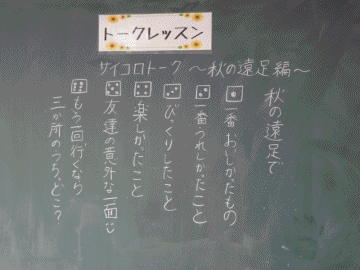 トークレッスン
サイコロトーク 〜秋の遠足編〜
秋の遠足で
一番おいしかったもの
一番うれしかったこと
びっくりしたこと
楽しかったこと
友達の意外な一面
もう一回行くなら
三か所のうち、どこ?